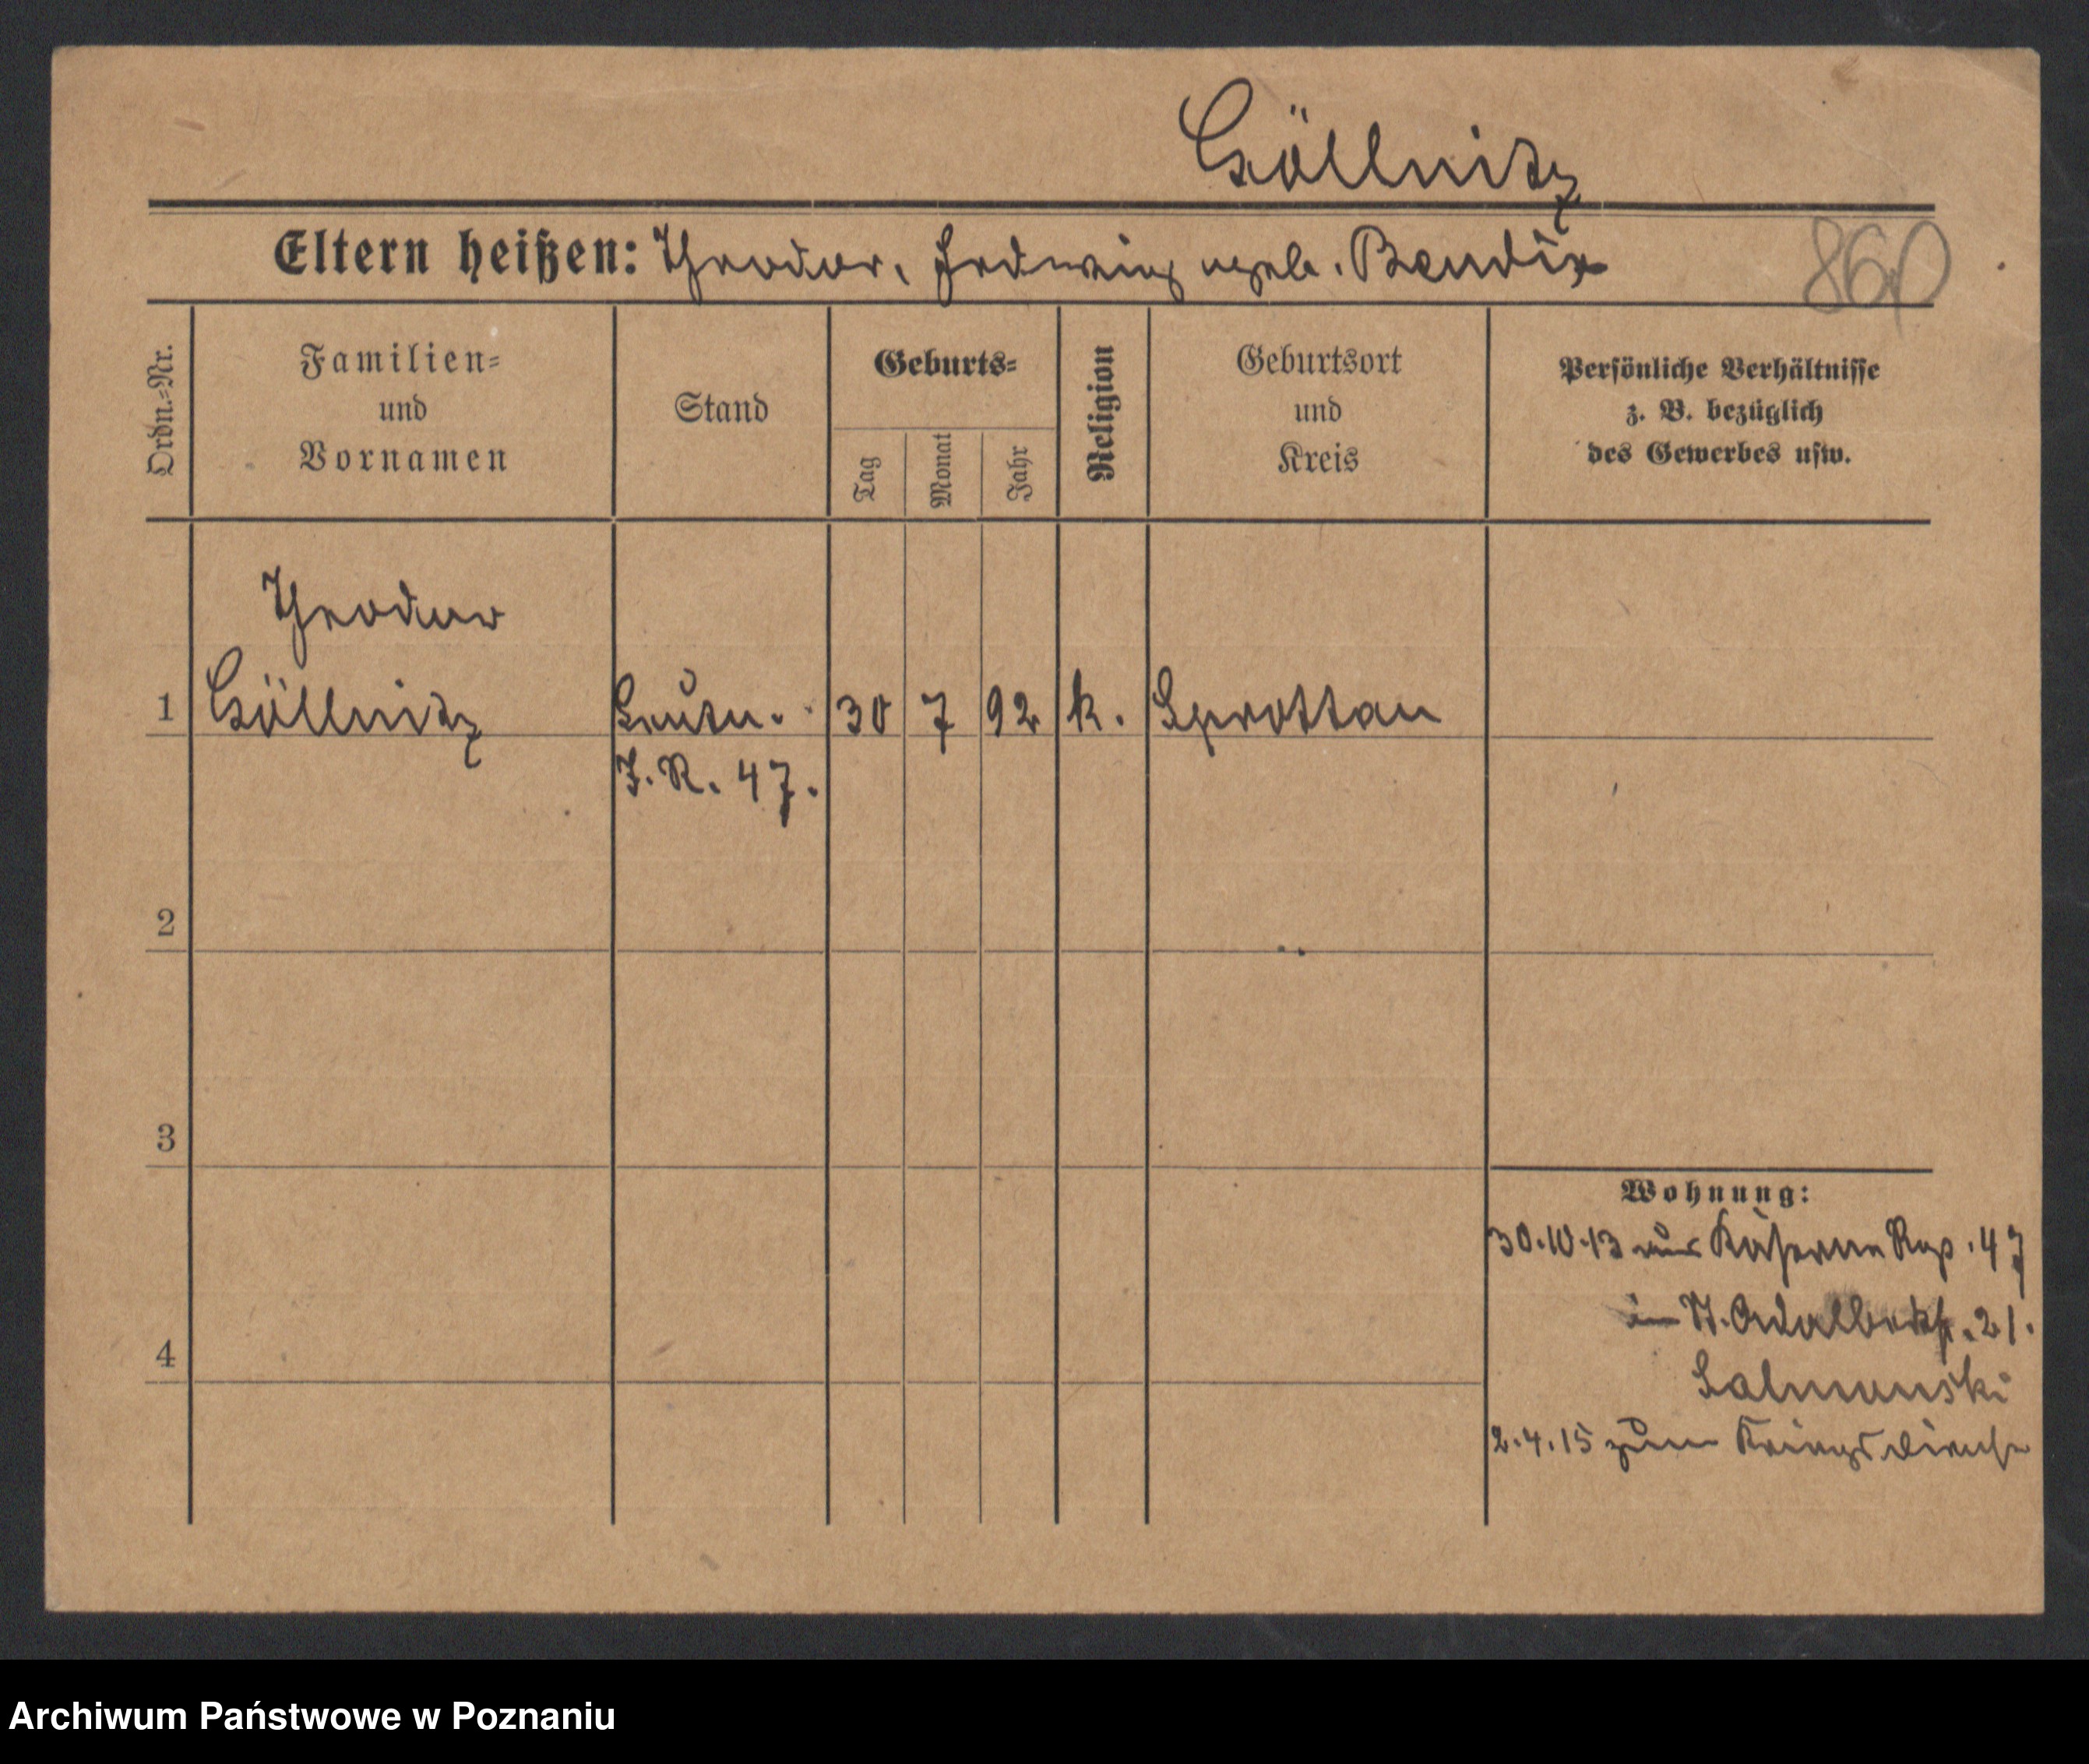 Göllnitz
Eltern heißen: Theodor, Hedwig geb. Bendix
860
Ordn.=Nr.
Familien=
und
Vornamen
Stand
Geburts=
Tag
Monat
Jahr
Religion
Geburtsort
und
Kreis
Persönliche Verhältnisse
z. B. bezüglich
des Gewerbes usw.
Theodor
1 Göllnitz Leutn. 30 7 92 k. Sprottau
I. R. 47.
2
3
4
Wohnung:
30.10.13 aus Kaserne Reg. 47
in St. Adalbertstr. 21.
Salmonski
2.4.15 zum Kriegsdienst
Archiwum Państwowe w Poznaniu